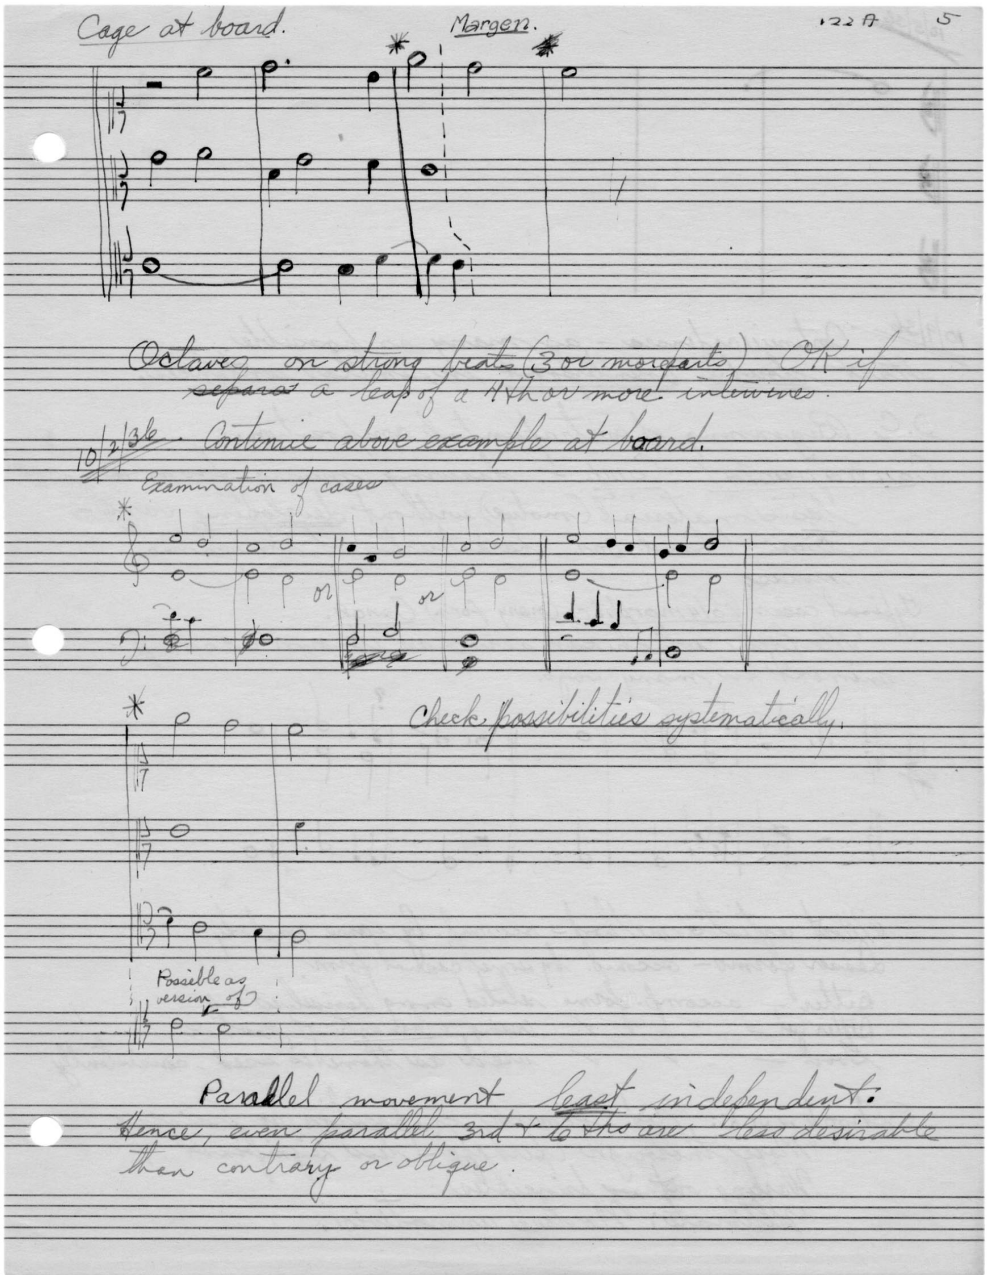 Cage at board. Margen. 122 A 5
Octaves on strong beats (3 or more parts) OK if
separat a leap of a 4th or more intervenes.
10/2/36. Continue above example at board.
Examination of cases
or or
Check possibilities systematically.
Possible as
version of
Parallel movement least independent:
Hence, even parallel 3rd + 6ths are less desirable
than contrary or oblique.